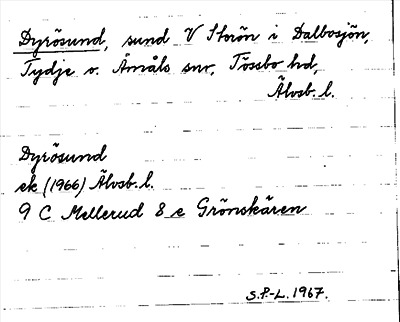 Dyrösund, sund V Storön i Dalbosjön,
Tydje o. Åmåls snr, Tössbo hd,
Älvsb. l.
Dyrösund
ek (1966) Älvsb. l.
9 C Mellerud 8 e Grönskären
S.P.-L. 1967.